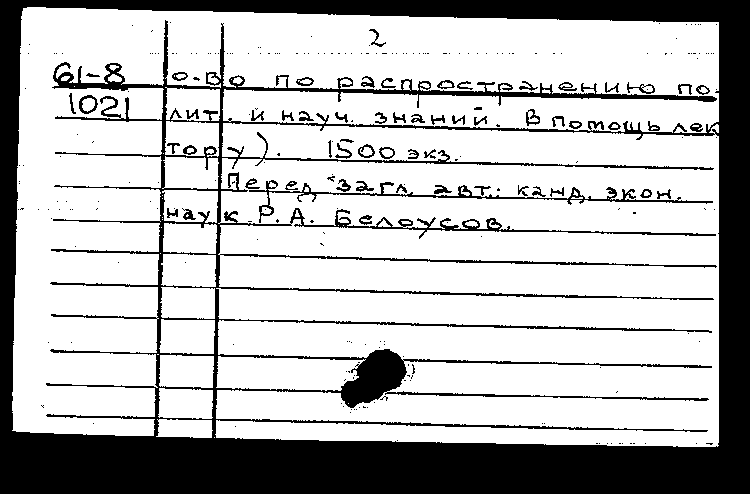 2
61-8 о-во по распространению по-
1021 лит. и науч. знаний. В помощь лек
тору). 1500 экз.
Перед загл. авт.: канд. экон.
наук Р.А. Белоусов.